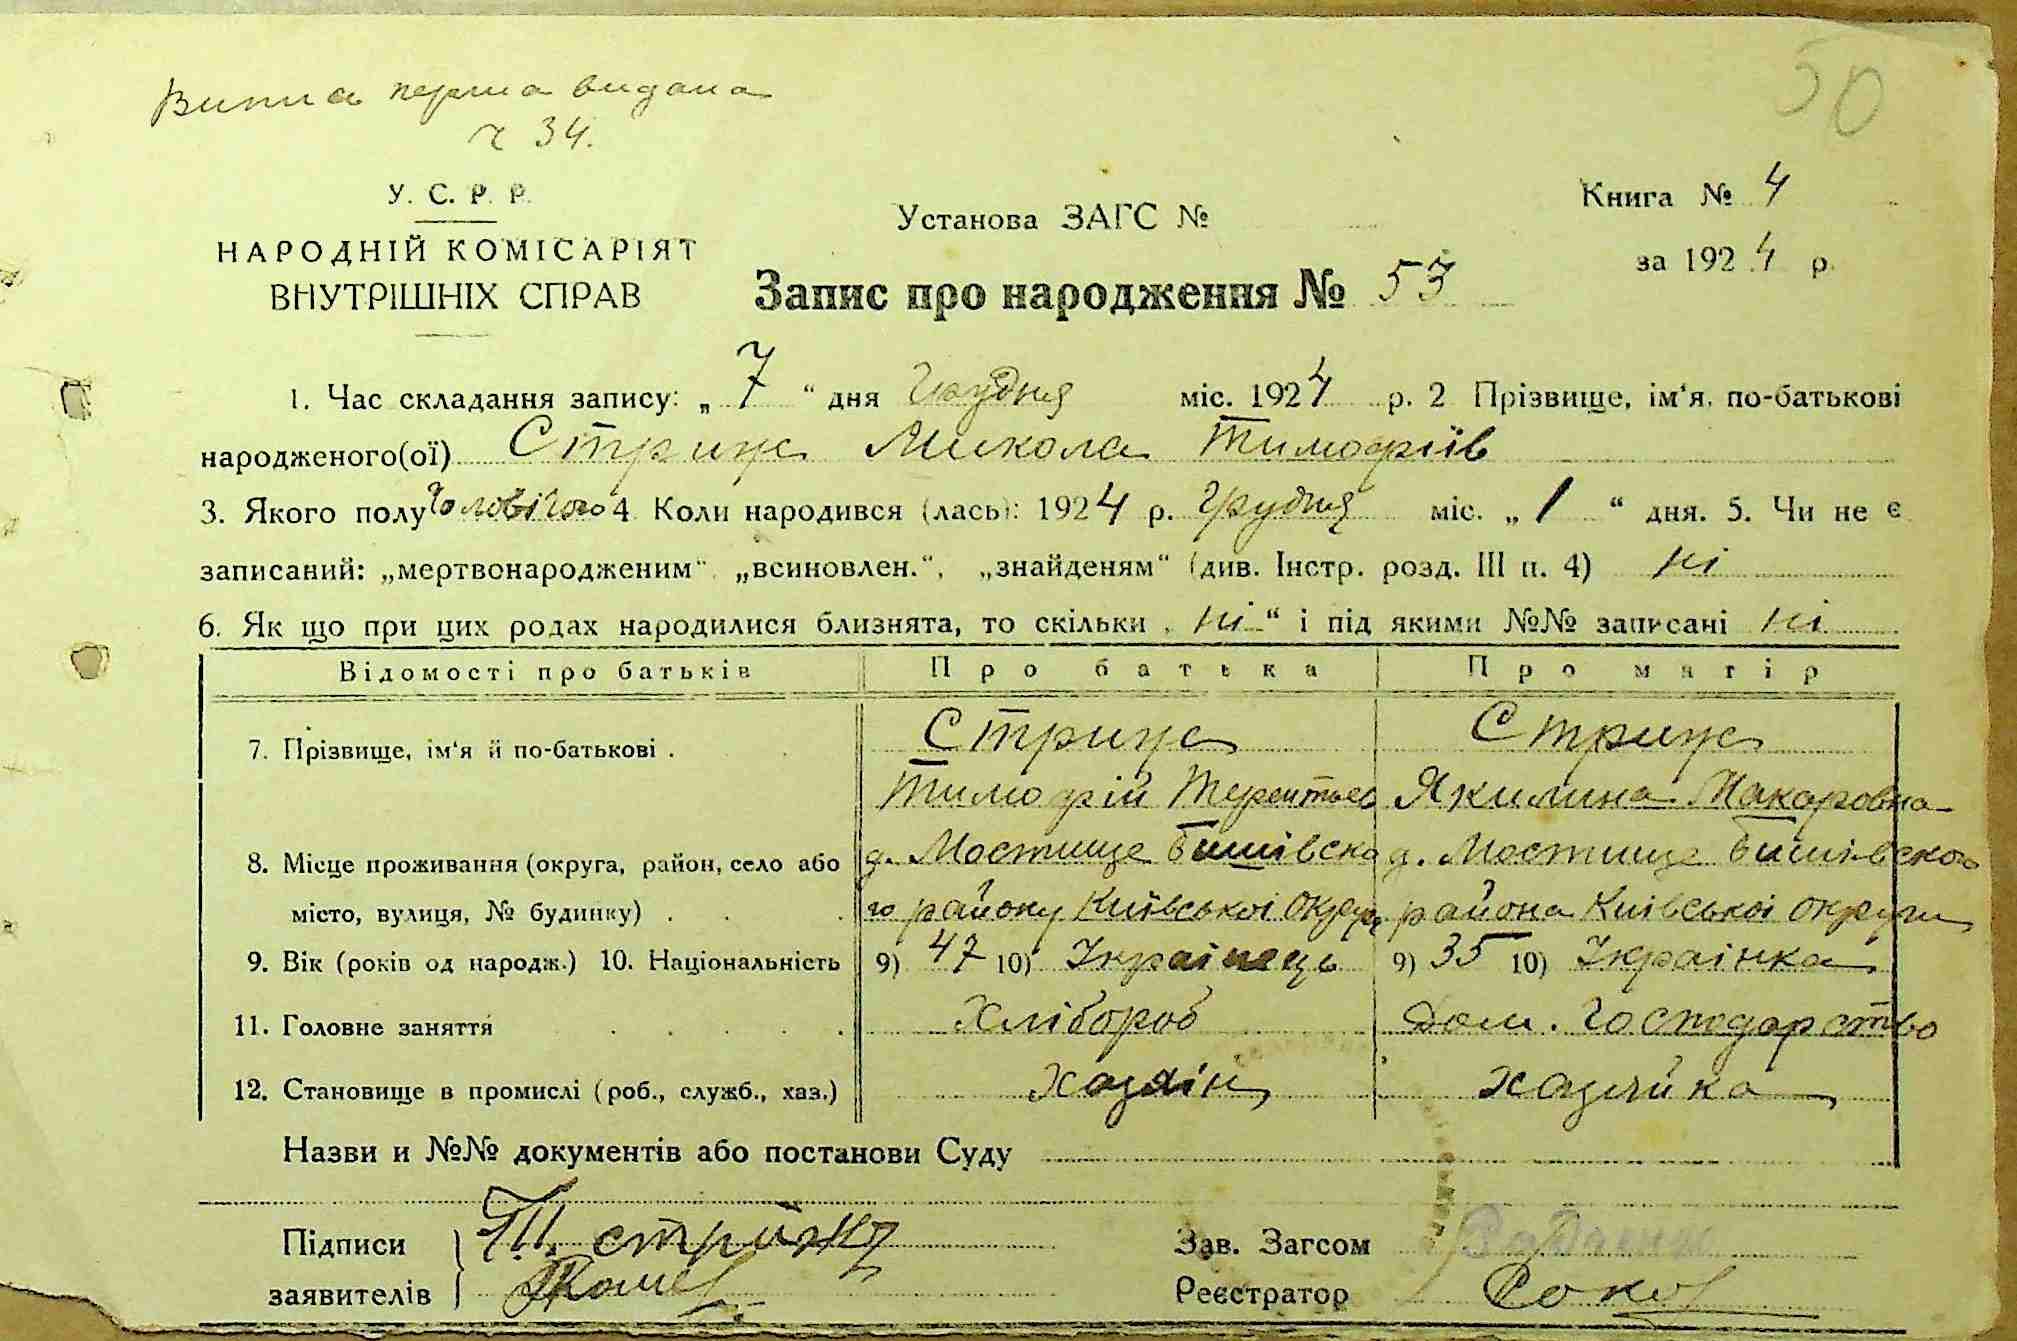 Випис перша видана
ч 34.
50
У. С. Р. Р.
НАРОДНІЙ КОМІСАРІЯТ
ВНУТРІШНІХ СПРАВ
Установа ЗАГС №
Книга № 4
за 1924 р.
Запис про народження № 53
1. Час складання запису: „ 7 “ дня Грудня міс. 1924 р. 2 Прізвище, ім‘я, по-батькові
народженого(ої) Стриж Микола Тимофіїв
3. Якого полу Чоловічого 4 Коли народився (лась): 1924 р. Грудня міс. „ 1 “ дня. 5. Чи не є
записаний: „мертвонародженим“, „всиновлен.“, „знайденям“ (див. Інстр. розд. III п. 4) ні
6. Як що при цих родах народилися близнята, то скільки „ ні “ і під якими №№ записані ні
Відомості про батьків Про батька Про матір
7. Прізвище, ім‘я й по-батькові . Стриж Стриж
Тимофій Терентьев Якилина Макаровна
8. Місце проживання (округа, район, село або д. Мостище Бишівско д. Мостище Бишівского
місто, вулиця, № будинку) . го району Київської Округи района Київської округи
9. Вік (років од народж.) 10. Національність 9) 47 10) Українець 9) 35 10) Українка
11. Головне заняття Хлібороб Дом. Господарство
12. Становище в промислі (роб., служб., хаз.) Хазяін хазяйка
Назви и №№ документів або постанови Суду
Підписи Т. стриж Зав. Загсом
заявителів Реєстратор Сокол